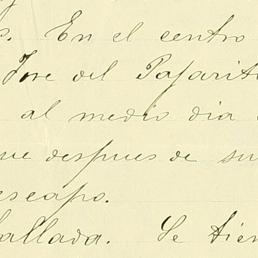 . En el centro
del Pajarit
al medio dia
ue despues de su
escapo.
allada. Se tien